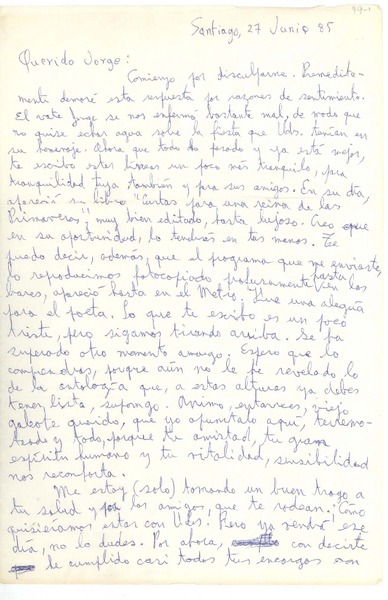 99-1
Santiago, 27 Junio 85
Querido Jorge:
Comienzo por disculparme. Premedita-
mente demoré esta respuesta por razones de sentimiento.
El vate Jorge se nos enfermó bastante mal, de modo que
no quise echar agua sobre la fiesta que Uds. tenían en
su homenaje. Ahora que todo ha pasado y ya está mejor,
te escribo estas líneas un poco más tranquilo, pra
tranquilidad tuya también y pra sus amigos. En su día,
apareció su libro "Cartas para una reina de las
Primaveras", muy bien editado, hasta lujoso. Creo que
en su oportunidad, lo tendrás en tus manos. Te
puedo decir, además, que el programa que me enviaste,
lo reproducimos fotocopiado profusamente, hasta en los
bares, apareció hasta en el Metro. Tuve una alegría
para el poeta. Lo que te escribo es un poco
triste, pero sigamos tirando arriba. Se ha
superado otro momento amargo. Espero que lo
comprendas, porque aún no le he revelado lo
de la antología que, a estas alturas ya debes
tener lista, supongo. Animo, entonces, viejo
galeote querido, que yo apuntalo aquí, terremo-
teado y todo, porque tu amistad, tu gran
espíritu humano y tu vitalidad, sensibilidad
nos reconforta.
Me estoy (solo) tomando un buen trago a
tu salud y pra los amigos, que te rodean. Cómo
quisiéramos estar con Uds. Pero ya vendrá ese
día, no lo dudes. Por ahora, con decirte
he cumplido casi todos tus encargos con